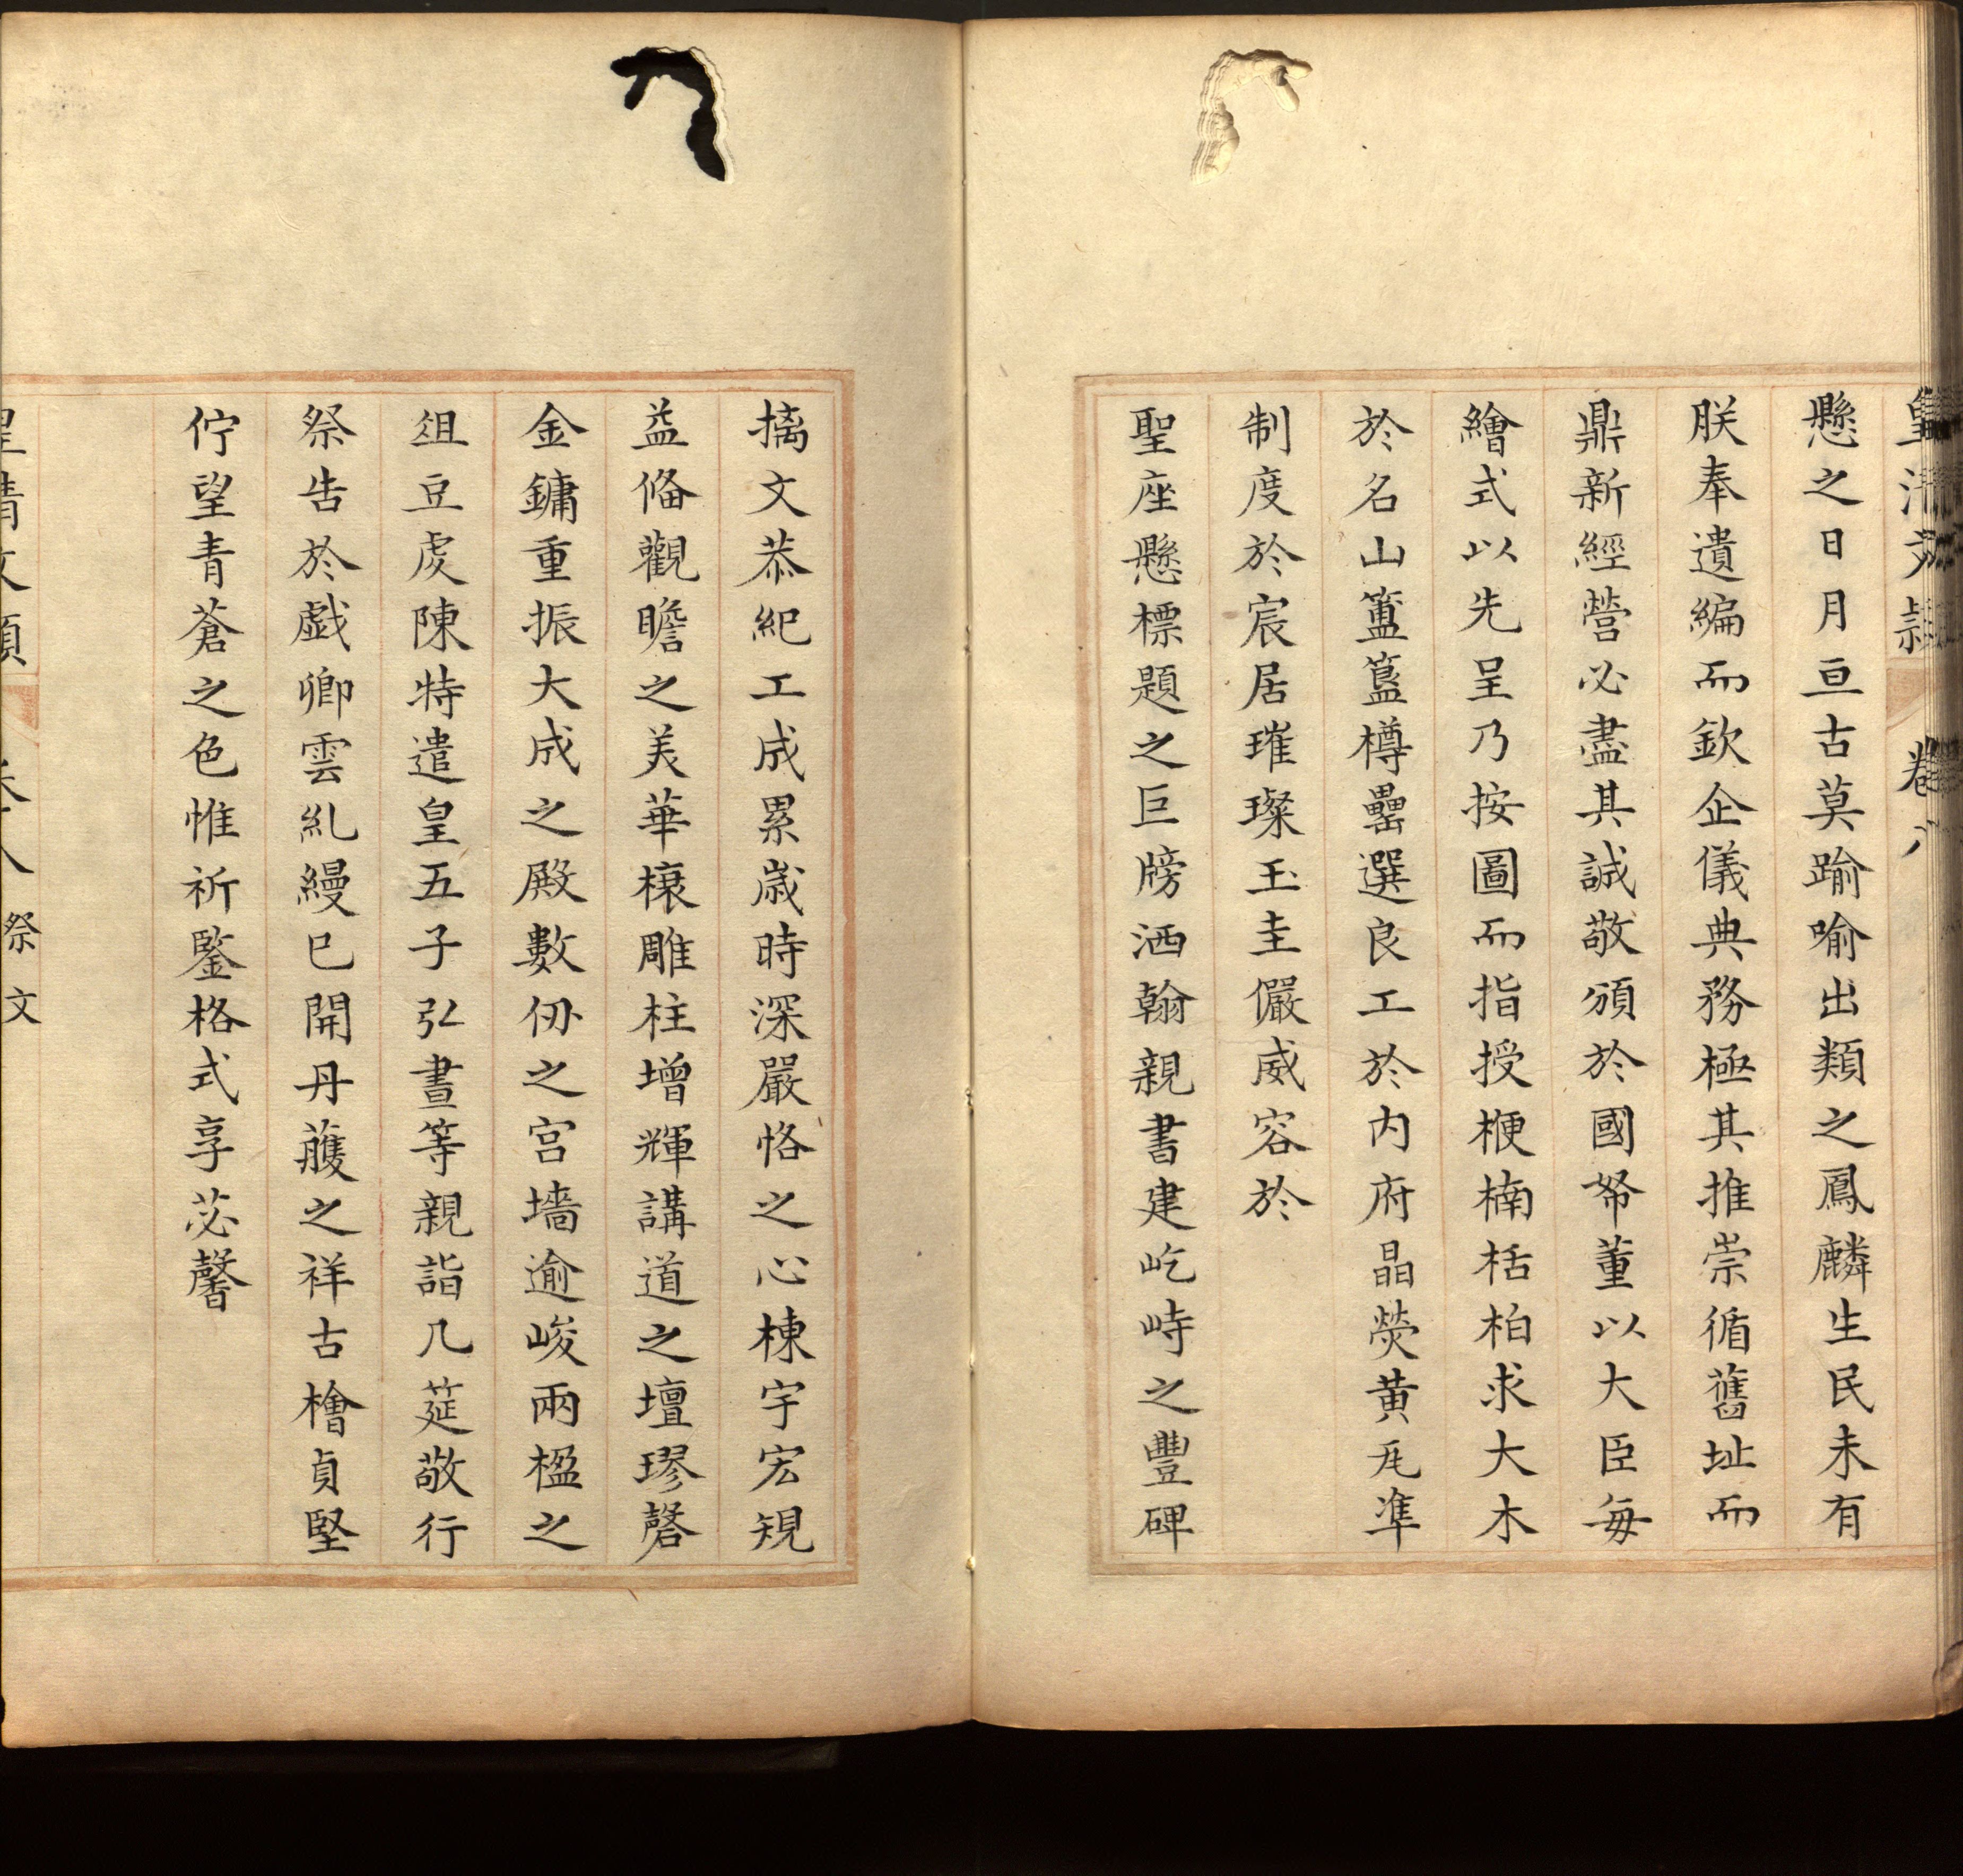 皇清文穎 卷八
懸之日月亘古莫踰喻出類之鳳麟生民未有
朕奉遺編而欽企儀典務極其推崇循舊址而
鼎新經營必盡其誠敬頒於國帑董以大臣每
繪式以先呈乃按圖而指授楩楠栝柏求大木
於名山簠簋樽罍選良工於内府晶熒黄瓦準
制度於宸居璀璨玉圭儼威容於
聖座懸標題之巨牓洒翰親書建屹峙之豐碑
摛文恭紀工成累歲時深嚴恪之心棟宇宏規
益脩觀瞻之美華榱雕柱增輝講道之壇璆磬
金鏞重振大成之殿數仞之宫墻逾峻兩楹之
俎豆虔陳特遣皇五子弘晝等親詣几筵敬行
祭告於戯卿雲糺縵已開丹雘之祥古檜貞堅
佇望青蒼之色惟祈鑒格式享苾馨
皇清文穎 卷八 祭文